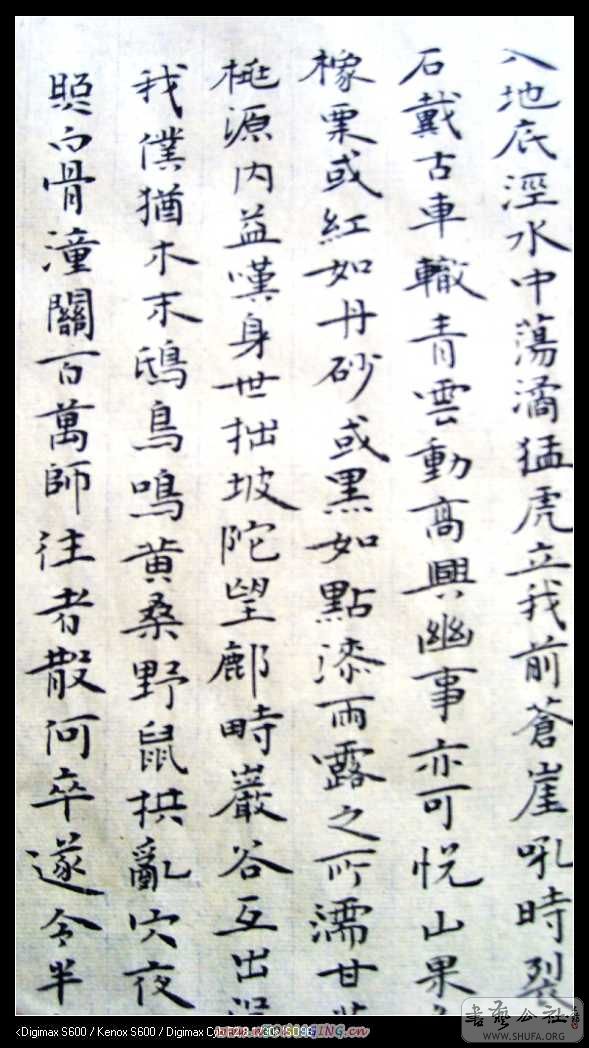 入地底涇水中蕩潏猛虎立我前蒼崖吼時裂
石戴古車轍青雲動高興幽事亦可悅山果
橡栗或紅如丹砂或黑如點漆雨露之所濡甘
桃源内益嘆身世拙坡陀望鄜畤巖谷互出
我僕猶木末鴟鳥鳴黄桑野鼠拱亂穴夜
照白骨潼關百萬師往者散何卒遂令半
書藝公社
WWW.SHUFA.ORG
<Digimax S600 / Kenox S600 / Digimax